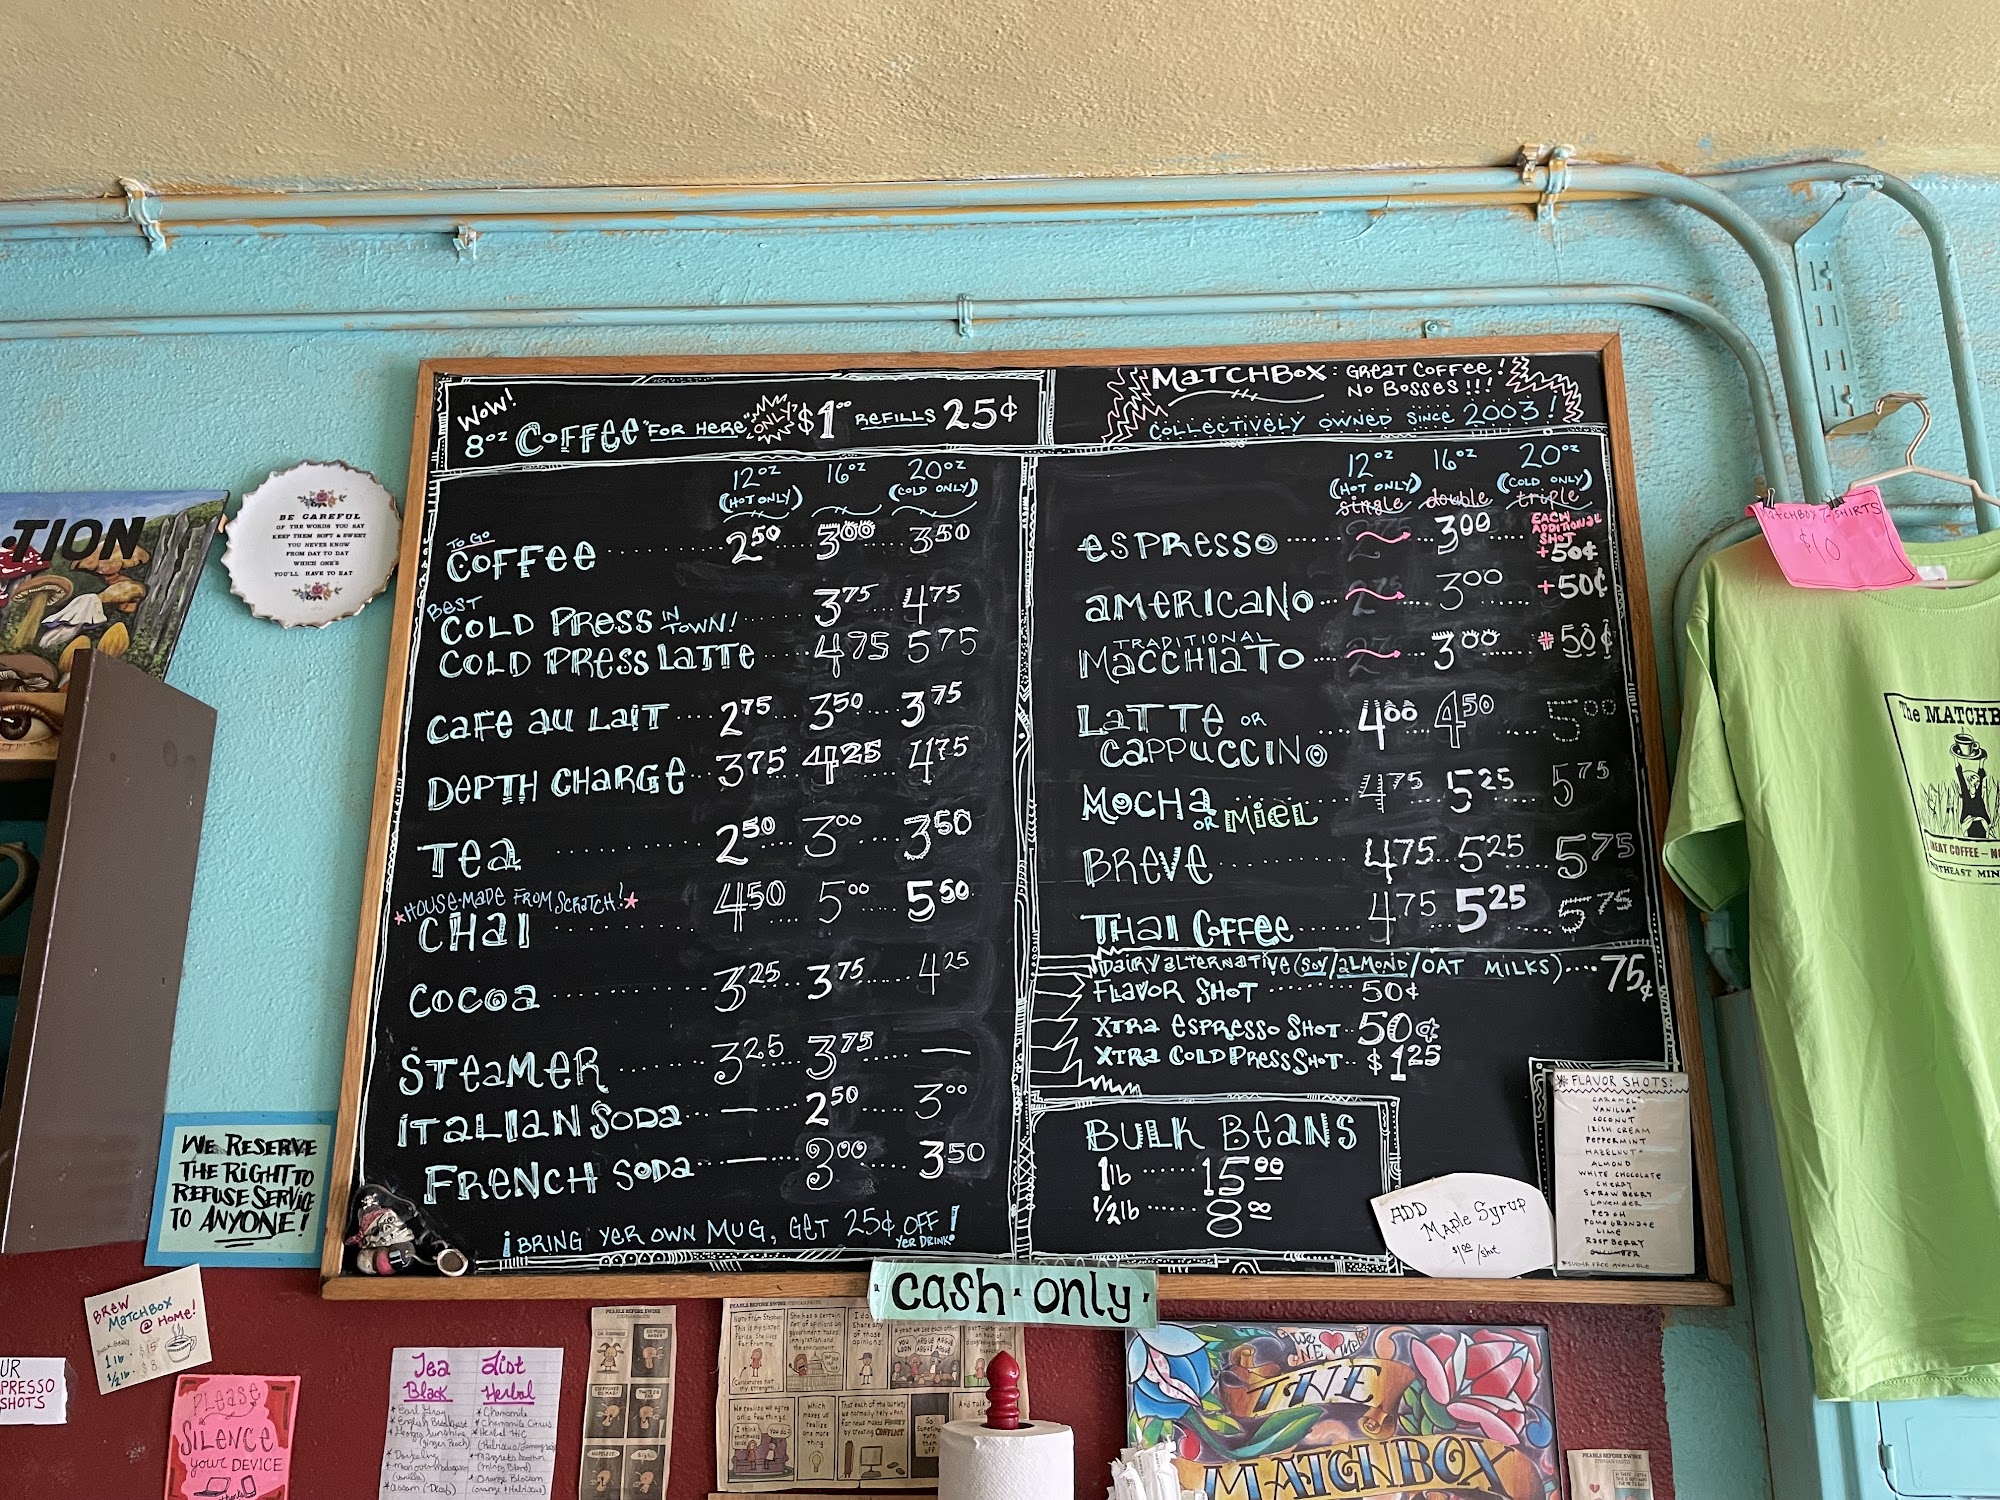 WOW!
8oz COFFEE "FOR HERE" ONLY $1.00 REFILLS 25¢
MATCHBOX: GREAT COFFEE!
NO BOSSES!!!
COLLECTIVELY OWNED SINCE 2003!
12oz 16oz 20oz
(HOT ONLY) (COLD ONLY)
TO GO
COFFEE 2.50 3.00 3.50
BEST
COLD PRESS IN TOWN! 3.75 4.75
COLD PRESS LATTE 4.75 5.75
CAFE AU LAIT 2.75 3.50 3.75
DEPTH CHARGE 3.75 4.25 4.75
TEA 2.50 3.00 3.50
*HOUSE-MADE FROM SCRATCH!*
CHAI 4.50 5.00 5.50
COCOA 3.25 3.75 4.25
STEAMER 3.25 3.75 —
ITALIAN SODA — 2.50 3.00
FRENCH SODA — 3.00 3.50
¡BRING YER OWN MUG, GET 25¢ OFF!
YER DRINK!
12oz 16oz 20oz
(HOT ONLY) (COLD ONLY)
single double triple
ESPRESSO 2.75 3.00 EACH ADDITIONAL SHOT +50¢
AMERICANO 2.75 3.00 +50¢
TRADITIONAL
MACCHIATO 2.75 3.00 +50¢
LATTE OR 4.00 4.50 5.00
CAPPUCCINO
MOCHA OR MIEL 4.75 5.25 5.75
BREVE 4.75 5.25 5.75
THAI COFFEE 4.75 5.25 5.75
DAIRY ALTERNATIVE (SOY/ALMOND/OAT MILKS) 75¢
FLAVOR SHOT 50¢
XTRA ESPRESSO SHOT 50¢
XTRA COLD PRESS SHOT $1.25
BULK BEANS
1lb 15.00
1/2lb 8.00
ADD
Maple Syrup
$1.00/shot
* FLAVOR SHOTS:
CARAMEL*
VANILLA*
COCONUT
IRISH CREAM
PEPPERMINT
HAZELNUT*
ALMOND
WHITE CHOCOLATE
CHERRY
STRAWBERRY
LAVENDER
PEACH
POMEGRANATE
LIME
RASPBERRY
*SUGAR FREE AVAILABLE
·cash·only·
-TION
BE CAREFUL
OF THE WORDS YOU SAY
KEEP THEM SOFT & SWEET
YOU NEVER KNOW
FROM DAY TO DAY
WHICH ONE'S
YOU'LL HAVE TO EAT
MATCHBOX T-SHIRTS
$10
The MATCHB
REAT COFFEE - N
RTHEAST MIN
WE RESERVE
THE RIGHT TO
REFUSE SERVICE
TO ANYONE!
BREW
MATCHBOX
@ HOME!
1lb $15
1/2lb $8
UR
PRESSO
SHOTS
Please
SILENCE
your DEVICE
thanks
Tea List
Black Herbal
* Earl Gray
* English Breakfast
* Chamomile
* Chamomile Citrus
PEARLS BEFORE SWINE
PEARLS BEFORE SWINE
We NE
THE
MATCHBOX
PEARLS BEFORE SWINE